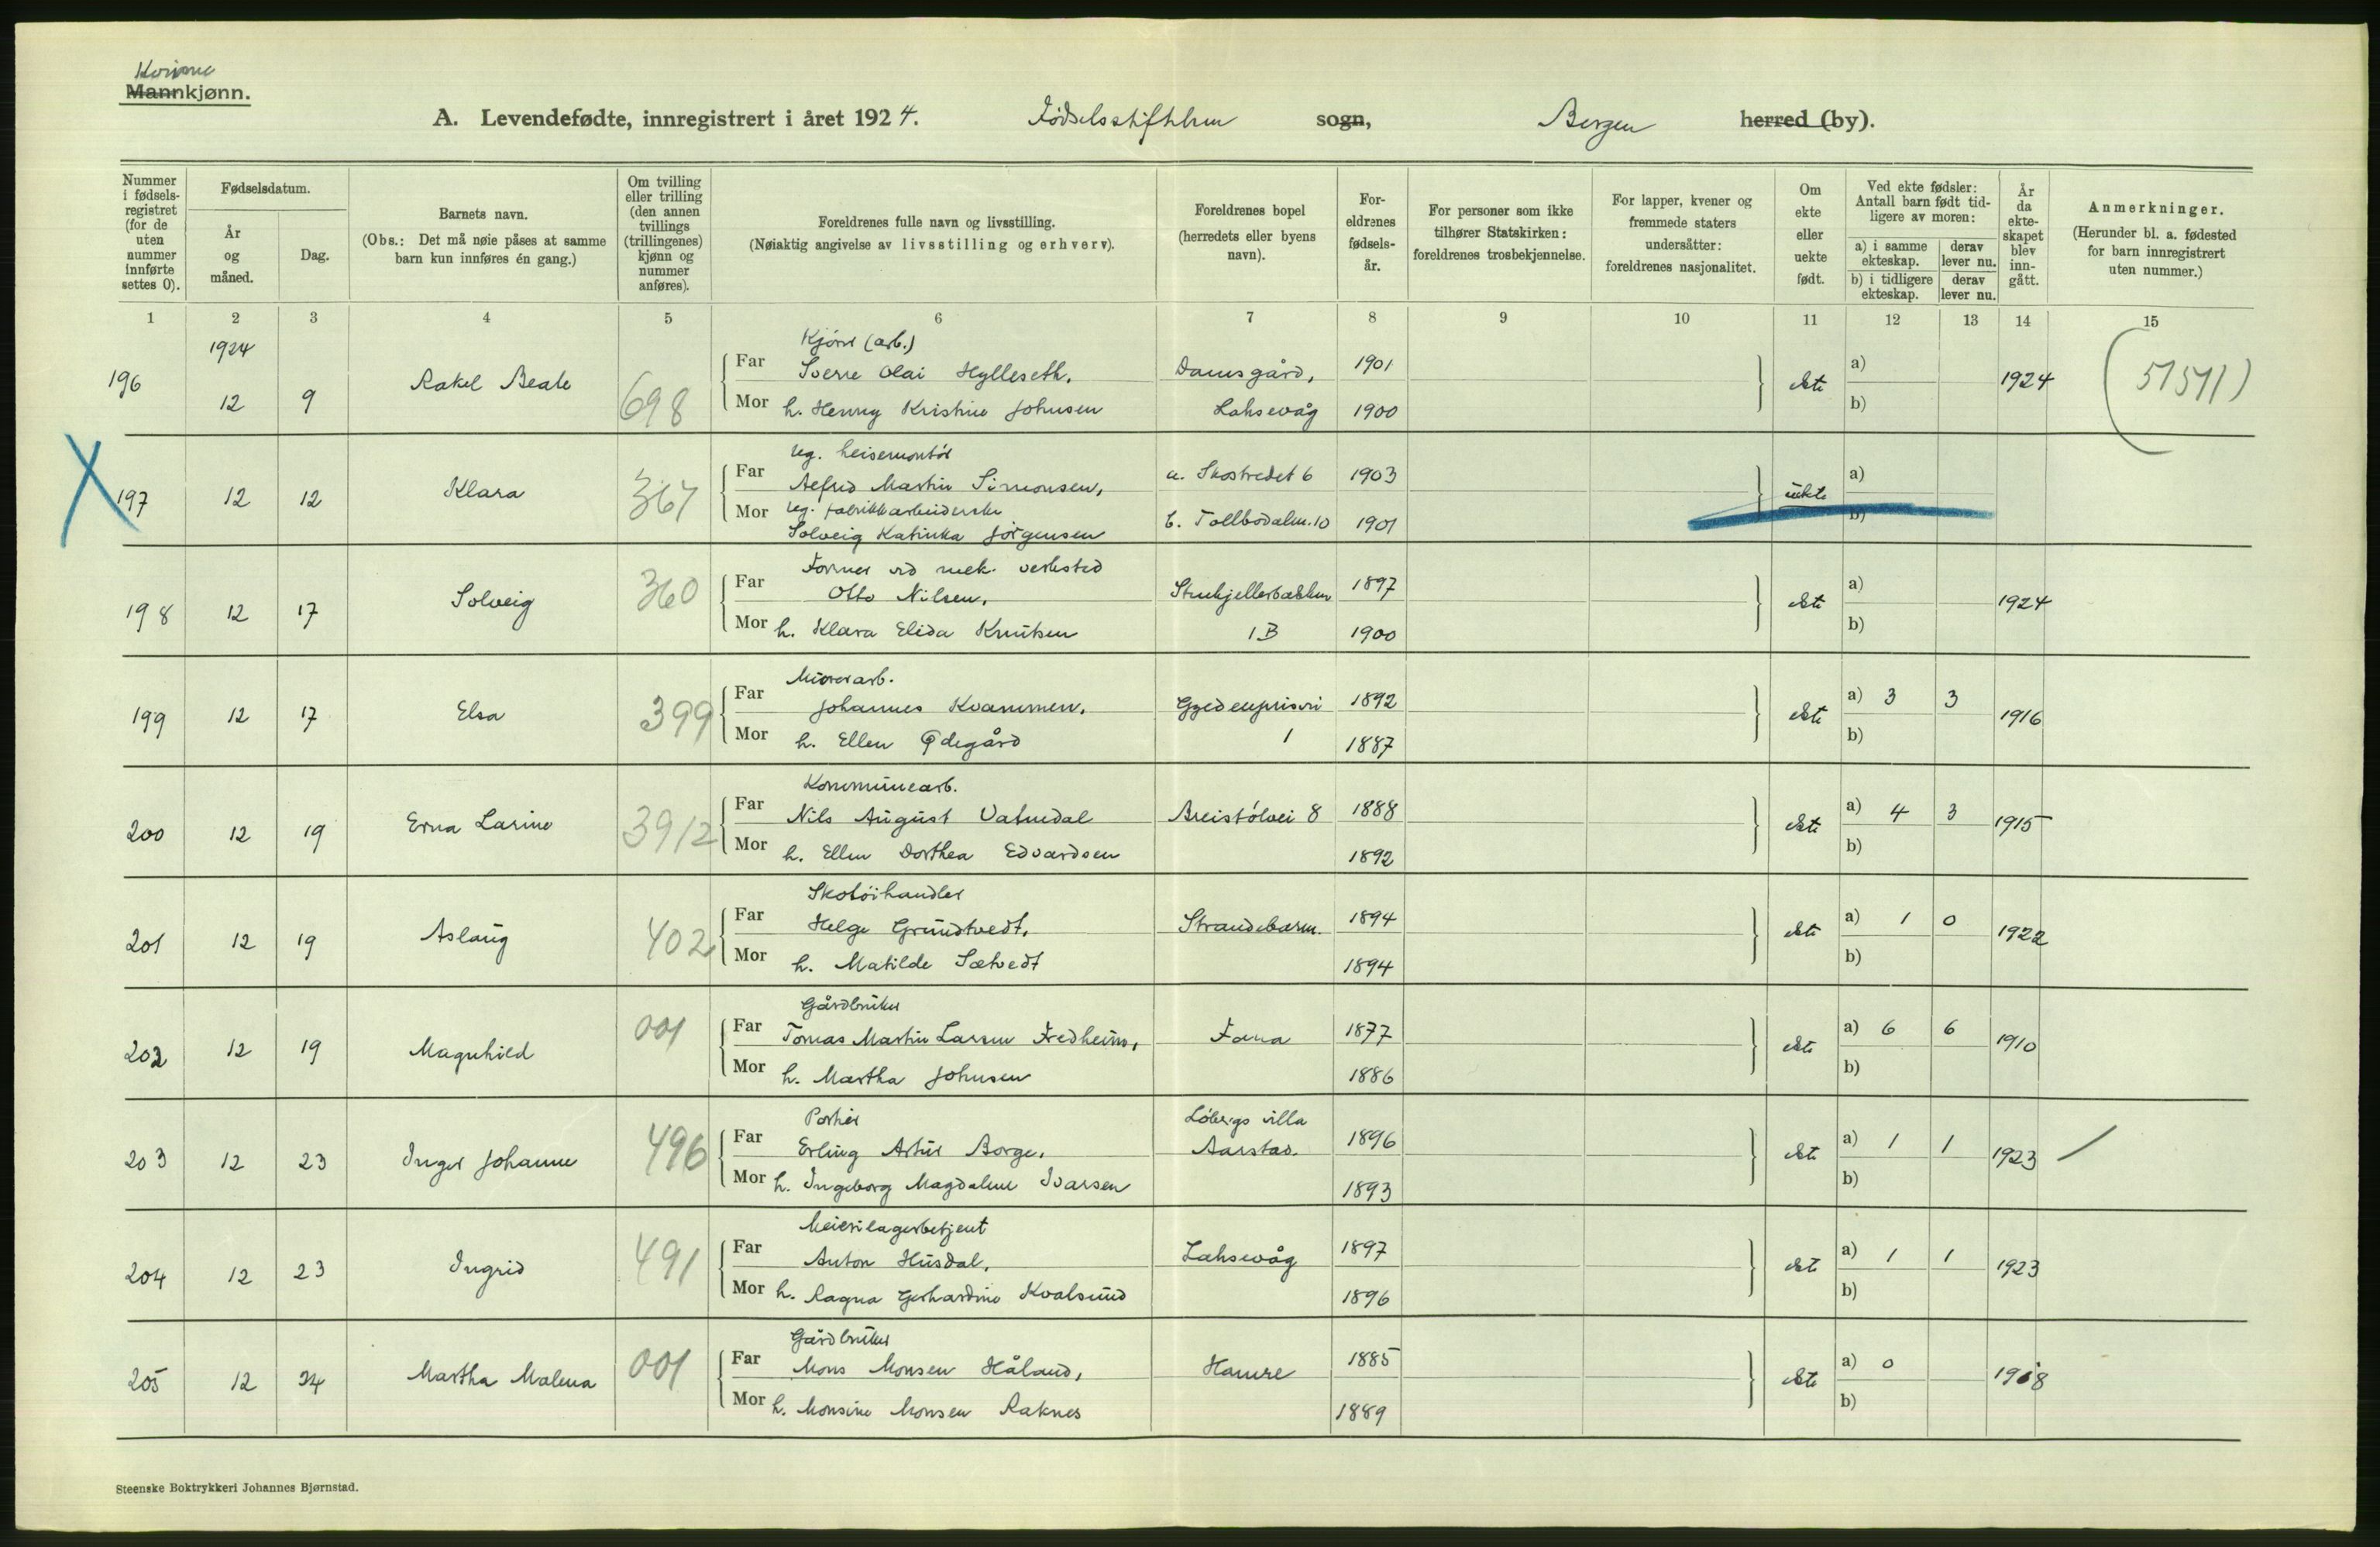 Kvinne
Mannkjønn.
A. Levendefødte, innregistrert i året 1924. Fødselsstiftelsen sogn, Bergen herred (by).
Nummer i fødsels-registret (for de uten nummer innførte settes 0).
Fødselsdatum.
År og måned.
Dag.
Barnets navn.
(Obs.: Det må nøie påses at samme barn kun innføres én gang.)
Om tvilling eller trilling (den annen tvillings (trillingenes) kjønn og nummer anføres).
Foreldrenes fulle navn og livsstilling.
(Nøiaktig angivelse av livsstilling og erhverv).
Foreldrenes bopel (herredets eller byens navn).
For-eldrenes fødsels-år.
For personer som ikke tilhører Statskirken: foreldrenes trosbekjennelse.
For lapper, kvener og fremmede staters undersåtter: foreldrenes nasjonalitet.
Om ekte eller uekte født.
Ved ekte fødsler: Antall barn født tid-ligere av moren:
a) i samme ekteskap.
derav lever nu.
b) i tidligere ekteskap.
derav lever nu.
År da ekte-skapet blev inn-gått.
Anmerkninger.
(Herunder bl. a. fødested for barn innregistrert uten nummer.)
1 2 3 4 5 6 7 8 9 10 11 12 13 14 15
1924
Kjører (arb.)
196 12 9 Rakel Beate 698 Far Sverre Olai Hylleseth, Damsgård, 1901 ekte a) 1924 (51511)
Mor h. Henny Kristine Johnsen Laksevåg 1900 b)
Ug. heisemontør
197 12 12 Klara 367 Far Alfred Martin Simonsen, a. Skostredet 6 1903 uekte a)
Mor Ug. fabrikkarbeiderske
Solveig Katinka Jørgensen b. Tollbodalm. 10 1901 b)
Former ved mek. verksted
198 12 17 Solveig 360 Far Otto Nilsen, Stenkjellerbakken 1897 ekte a) 1924
Mor h. Klara Elida Knutsen 1B 1900 b)
Murerarb.
199 12 17 Elsa 399 Far Johannes Kvammen, 1892 ekte a) 3 3 1916
Mor h. Ellen Ødegård 1 1887 b)
Kommunearb.
200 12 19 Erna Larine 3912 Far Nils August Vatnedal Breistølvei 8 1888 ekte a) 4 3 1915
Mor h. Ellen Dorthea Edvardsen 1892 b)
Skotøihandler
201 12 19 Aslaug 402 Far Helge Grundtvedt, Strandebarm. 1894 ekte a) 1 0 1922
Mor h. Matilde Sætvedt 1894 b)
Gårdbruker
202 12 19 Magnhild 001 Far Tomas Martin Larsen Fredheim, Fana 1877 ekte a) 6 6 1910
Mor h. Martha Johnsen 1886 b)
Portier Løbergs villa
203 12 23 Inger Johanne 496 Far Erling Artur Borge, Aarstad. 1896 ekte a) 1 1 1923
Mor h. Ingeborg Magdalene Ivarsen 1893 b)
Meierilagerbetjent
204 12 23 Ingrid 491 Far Anton Husdal, Laksevåg 1897 ekte a) 1 1 1923
Mor h. Ragna Gerhardine Kvalsund 1896 b)
Gårdbruker
205 12 24 Martha Malena 001 Far Mons Monsen Håland, Hamre 1885 ekte a) 0 1918
Mor h. Monsine Monsen Raknes 1889 b)
Steenske Boktrykkeri Johannes Bjørnstad.